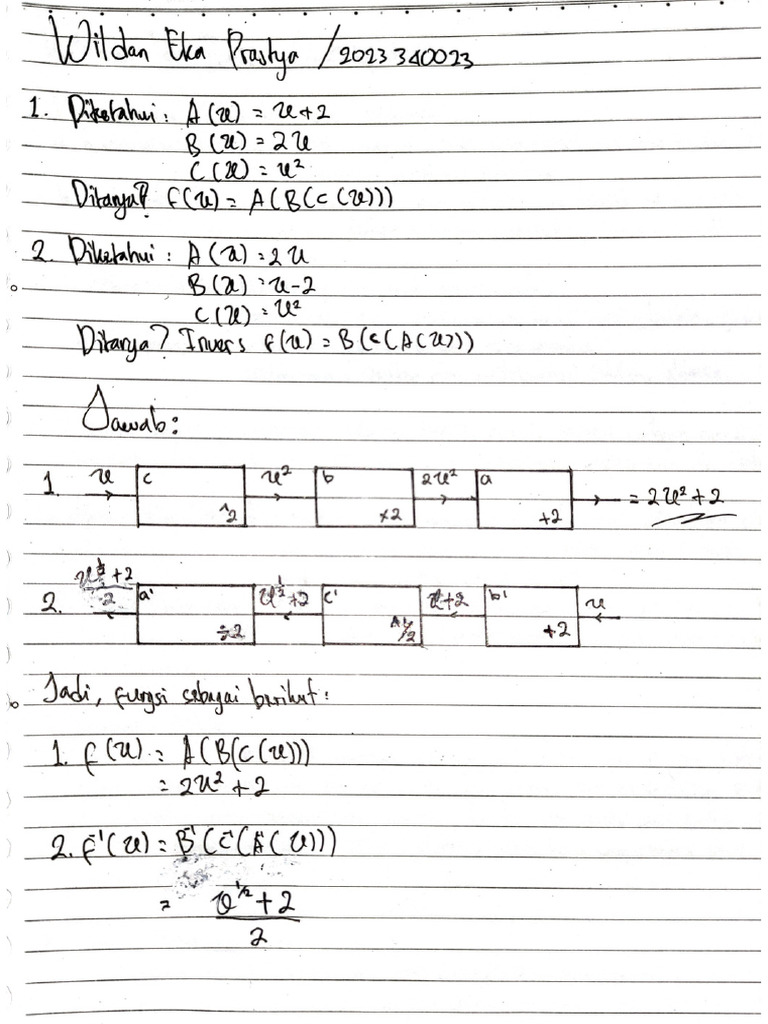 Wildan Eka Prastya / 2023340023
1. Diketahui : A(x) = x+2
B(x) = 2x
C(x) = x²
Ditanya? f(x) = A(B(C(x)))
2. Diketahui : A(x) = 2x
B(x) = x-2
C(x) = x²
Ditanya? Invers f(x) = B(C(A(x)))
Jawab :
1. x c ^2 x² b ×2 2x² a +2 = 2x² + 2
2. x^½+2 / 2 a' ÷2 x^½+2 c' ^½ x+2 b' +2 x
Jadi, fungsi sebagai berikut :
1. f(x) = A(B(C(x)))
= 2x² + 2
2. f⁻¹(x) = B⁻¹(C⁻¹(A⁻¹(x)))
= x^½ + 2
2